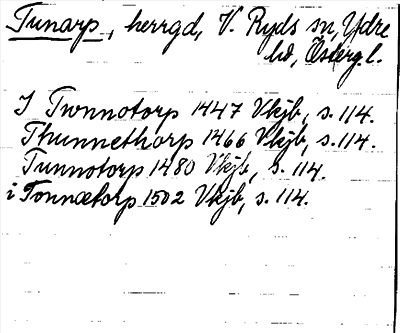 Tunarp, herrgd, V. Ryds sn, Ydre
hd, Österg.l.
I Twnnotorp 1447 Vkjb, s. 114.
Thunnethorp 1466 Vkjb, s. 114.
Tunnotorp 1480 Vkjb, s. 114.
i Tonnætorp 1502 Vkjb, s. 114.